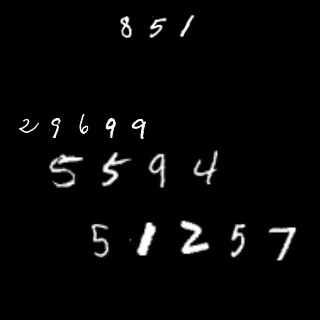 851
29699
5594
51257